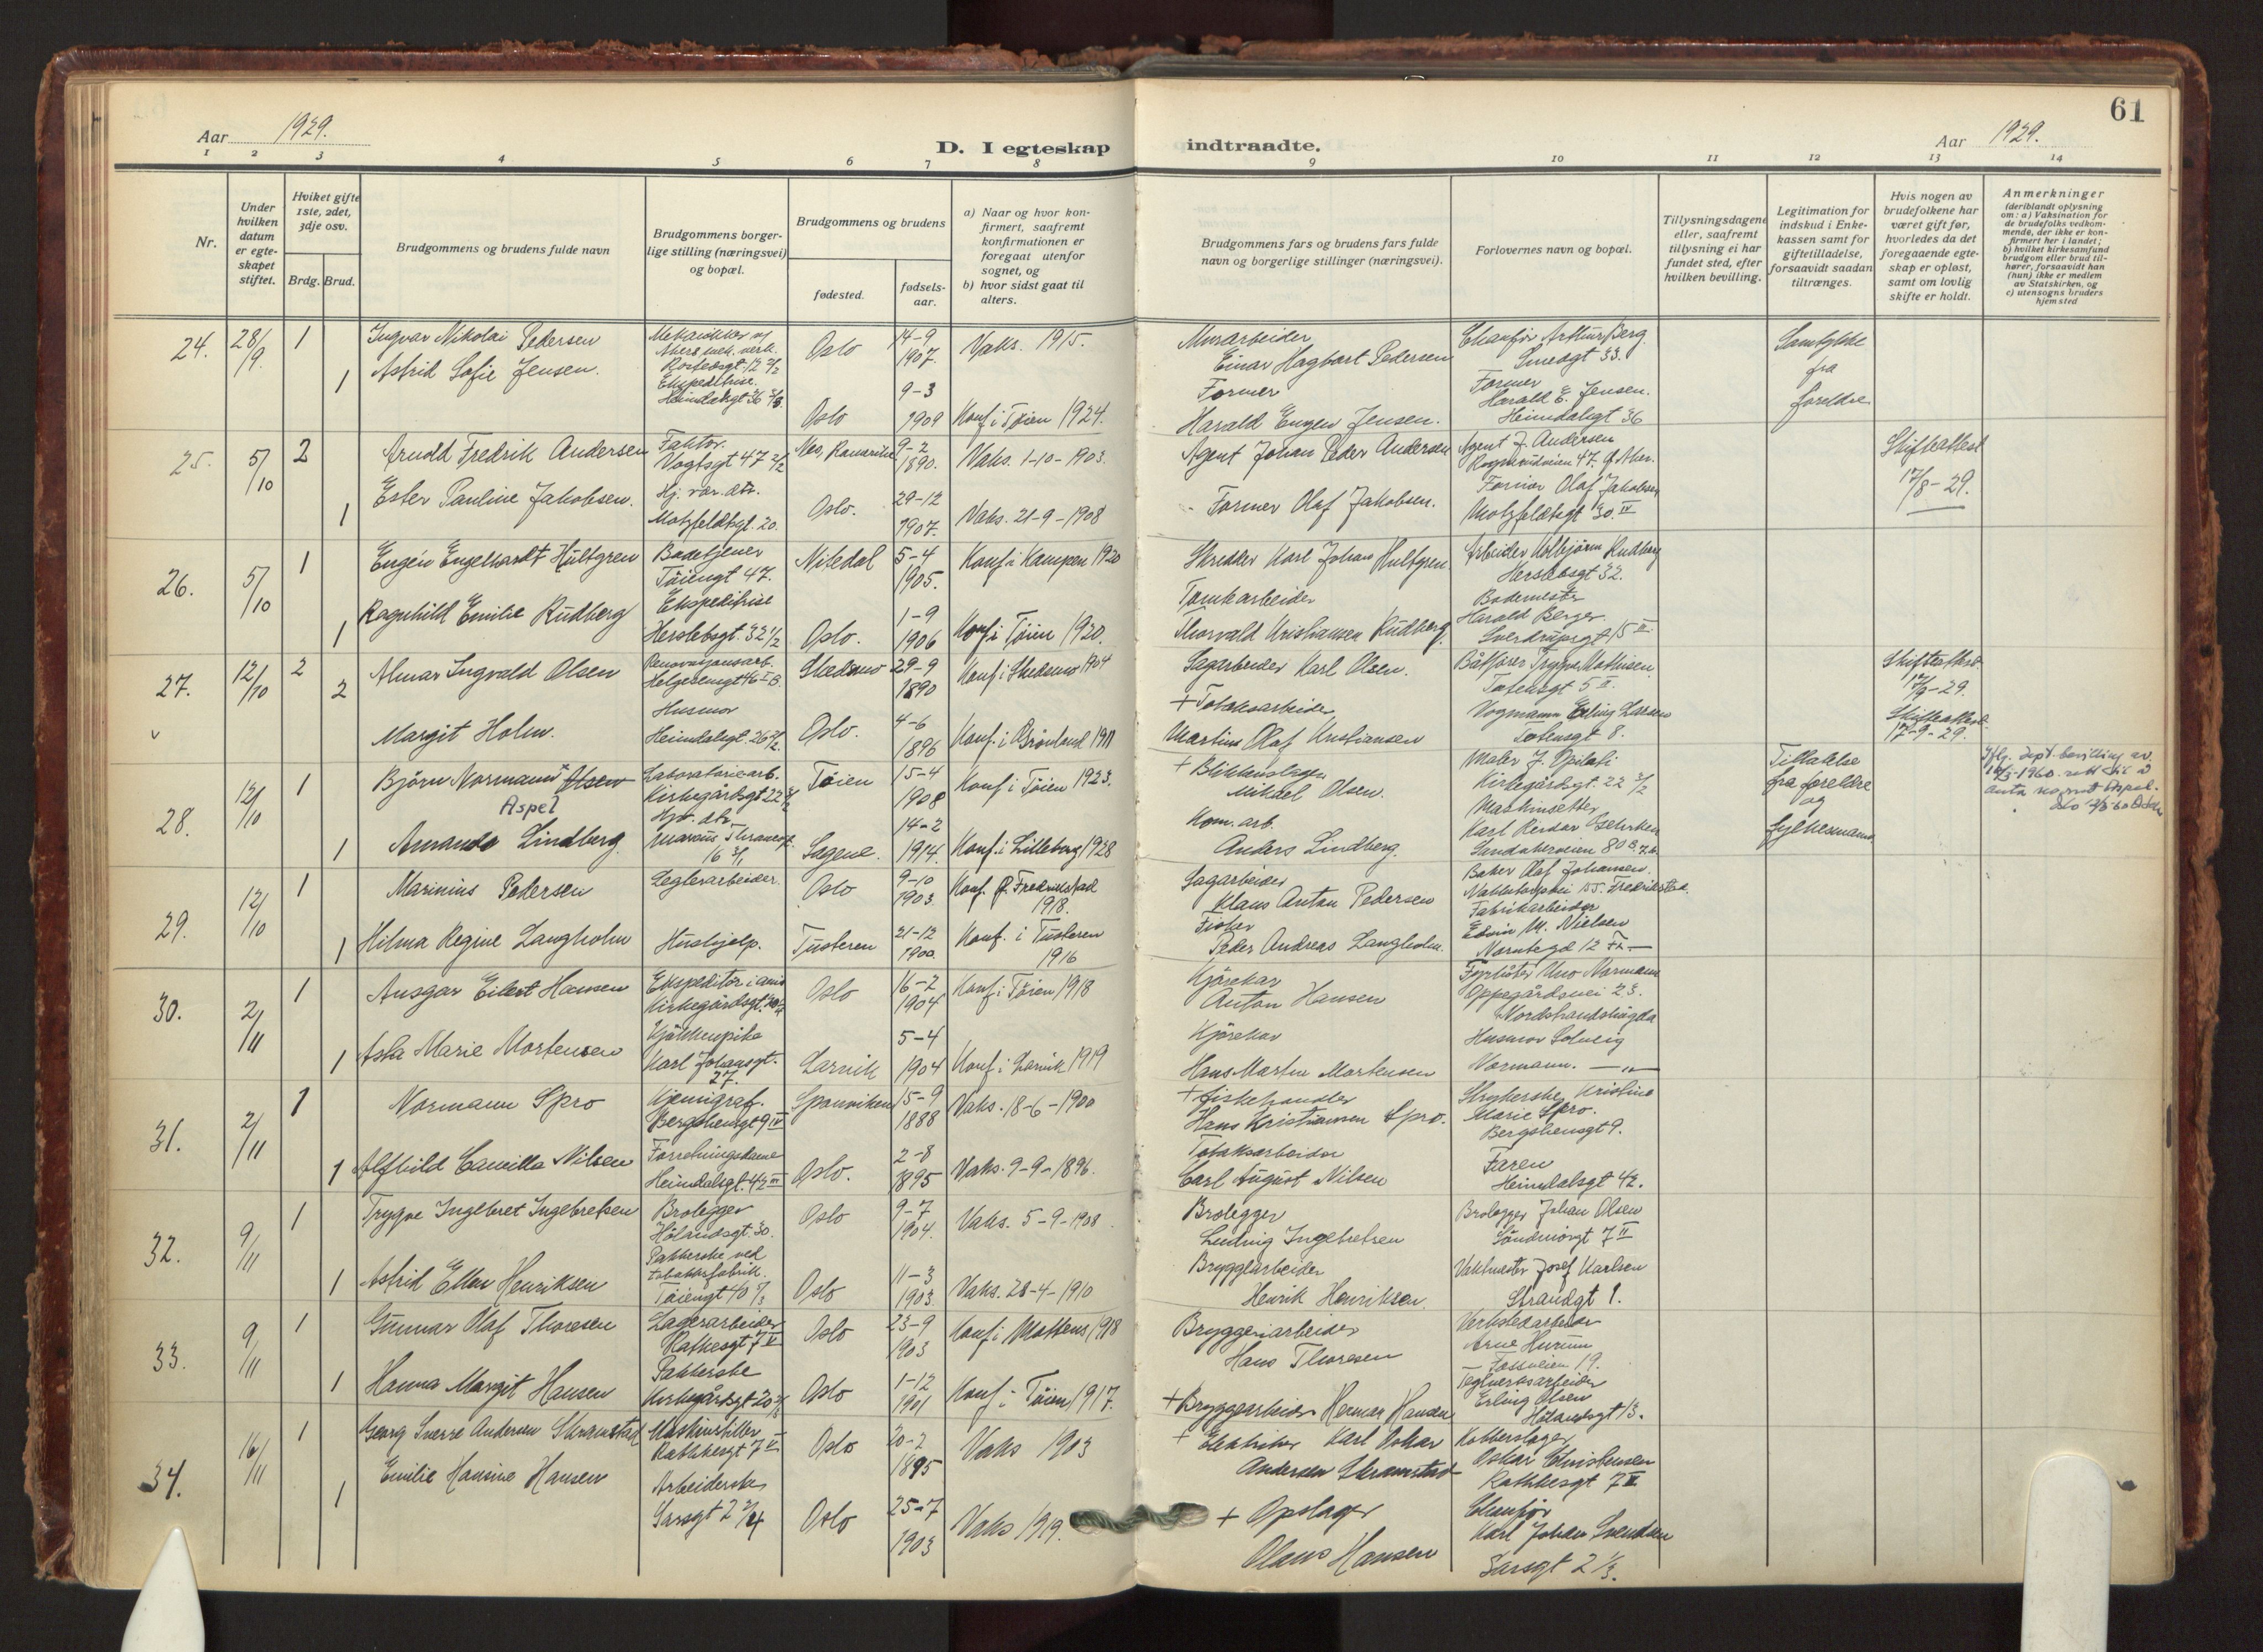 61
Aar 1929.
D. I egteskap indtraadte.
Aar 1929.
1 2 3 4 5 6 7 8 9 10 11 12 13 14
Nr.
Under hvilken datum er egteskapet stiftet.
Hviket gifte 1ste, 2det, 3dje osv.
Brdg. Brud.
Brudgommens og brudens fulde navn
Brudgommens borgerlige stilling (næringsvei) og bopæl.
Brudgommens og brudens
fødested.
fødselsaar.
a) Naar og hvor konfirmert, saafremt konfirmationen er foregaat utenfor sognet, og
b) hvor sidst gaat til alters.
Brudgommens fars og brudens fars fulde navn og borgerlige stillinger (næringsvei).
Forlovernes navn og bopæl.
Tillysningsdagene eller, saafremt tillysning ei har fundet sted, efter hvilken bevilling.
Legitimation for indskud i Enkekassen samt for giftetilladelse, forsaavidt saadan tiltrænges.
Hvis nogen av brudefolkene har været gift før, hvorledes da det foregaaende egteskap er opløst, samt om lovlig skifte er holdt.
Anmerkninger
(deriblandt oplysning om: a) Vaksination for de brudefolks vedkommende, der ikke er konfirmert her i landet; b) hvilket kirkesamfund brudgom eller brud tilhører, forsaavidt han (hun) ikke er medlem av Statskirken, og c) utensogns bruders hjemsted
24. 28/9 1 Ingvar Nikolai Pedersen
Oslo 14-9 1907. Vaks. 1915.
Murarbeider Einar Hagbart Pedersen
Chauffør Arthur Berg Smedgt 33.
Samtykke fra foreldre
1 Astrid Sofie Jensen.
Ekspeditrise. Heimdalsgt 36
Oslo 9-3 1909 Konf i Tøien 1924.
Former Harald Eugen Jensen.
Former Harald E. Jensen. Heimdalsgt 36
25. 5/10 2 Arnold Fredrik Andersen
Faktor. Vogtsgt 47
Nes, Romerike 9-2 1890. Vaks. 1-10-1903.
Agent Johan Peder Andersen
Agent J. Andersen
Skifteattest 17/8-29.
1 Ester Pauline Jakobsen.
Hj. vær. dtr. Motzfeldtsgt. 20.
Oslo. 29-12 1907. Vaks. 21-9-1908
Former Olaf Jakobsen.
Former Olaf Jakobsen Motzfeldtsgt 30. IV
26. 5/10 1 Eugén Engelhardt Hultgren
Badetjener Tøiengt 47.
Nitedal 5-4 1905. Konf i Kampen 1920
Skredder Karl Johan Hultgren
Arbeider Kolbjørn Rudberg Herslebsgt 32.
1 Ragnhild Emilie Rudberg
Ekspeditrise Herslebsgt. 32 1/2
Oslo. 1-9 1906 Konf i Tøien 1920.
Tomtearbeider Thorvald Kristiansen Rudberg.
Bademester Harald Berger Sverdrupsgt 15 II
27. 12/10 2 Almar Ingvald Olsen
Renovasjonsarb. Helgesensgt 46
Skedsmo 29-9 1890 Konf i Skedsmo 1904
Sagarbeider Karl Olsen.
Båtfører Trygve Mathisen Totensgt 5 II.
Skifteattest 17/9-29.
2 Margit Holm.
Husmor Heimdalsgt. 26
Oslo. 4-6 1896 Konf. i Grønland 1911
+ Tobaksarbeider Martin Olaf Kristiansen
Vogmann Erling Larsen Totensgt 8.
Skifteattest 17-9-29.
28. 12/10 1 Bjørn Normann Olsen
Aspel
Laboratoriearb. Kirkegårdsgt 22
Tøien 15-4 1908 Konf i Tøien 1923.
+ Blikkenslager Mikael Olsen.
Maler J. Opilafi Kirkegårdsgt. 22 3/2
Tillatelse fra foreldre og fylkesmann
1 Amanda Lindberg.
Marcus Thranesgt. 16
Sagene. 14-2 1914. Konf. i Lilleborg 1928
Kom. arb. Anders Lindberg.
Maskinsetter Karl Reidar
29. 12/10 1 Marinius Pedersen
Teglarbeider.
Oslo 9-10 1903. Konf. Ø. Fredrikstad 1918.
Sagarbeider Klaus Anton Pedersen
Baker Olaf Johansen.
1 Hilma Regine Langholm
Hushjelp.
Tusteren 21-12 1900. Konf. i Tusteren 1916
Fisker Peder Andreas Langholm.
Fabrikarbeider Edvin M. Nielsen
30. 2/11 1 Ansgar Eilert Hansen
Ekspeditør i avis Kirkegårdsgt.
Oslo 16-2 1904 Konf i Tøien 1918
Kjørekar Anton Hansen
Fyrbøter Uno Normann Oppegårdsvei 23. Nordstrandshøgda
1 Asta Marie Mortensen
Kjøkkenpike Karl Johansgt. 27.
Larvik 5-4 1904 Konf i Larvik 1919
Kjørekar Hans Martin Mortensen
Husmor Solveig Normann. — „ —
31. 2/11 1 Normann Spro
Kjemigraf. Bergsliensgt 9 IV
Spannviken 15-9 1888 Vaks. 18-6-1900
+ Fiskehandler Hans Kristiansen Spro.
Strykerske Kristine Marie Spro. Bergsliensgt 9.
1 Alfhild Camilla Nilsen
Forretningsdame Heimdalsgt. 42 III
Oslo. 2-8 1895 Vaks. 9-9-1896.
Tobaksarbeider Carl August Nilsen
Faren Heimdalsgt 42.
32. 9/11 1 Trygve Ingebret Ingebretsen
Brolegger Hølandsgt. 30.
Oslo 9-7 1904. Vaks. 5-9-1908.
Brolegger Ludvig Ingebretsen
Brolegger Johan Olsen Søndmørsgt 7 II
1 Astrid Ellen Henriksen
Pakkerske ved tobakksfabrik. Tøiengt 40 1/3
Oslo 11-3 1903. Vaks. 28-4-1910
Bryggearbeider Henrik Henriksen.
Vaktmester Josef Karlsen Strandgt 1.
33. 9/11 1 Gunnar Olaf Thoresen
Lagerarbeider Rathkesgt 7 II
Oslo 23-9 1903 Konf i Matteus 1918
Bryggeriarbeider Hans Thoresen
Verkstedarbeider Arne Hurum Fossveien 19.
1 Hanna Margit Hansen
Pakkerske Kirkegårdsgt 20
Oslo 1-12 1901 Konf i Tøien 1917.
+ Bryggearbeider Herman Hansen
Teglverksarbeider Erling Olsen Hølandsgt 13.
34. 16/11 1 Georg Sverre Andersen Skramstad
Maskinstiller Rathkesgt 7 II
Oslo 20-2 1895 Vaks 1903
+ Elektriker Karl Oskar Andersen Skramstad
Kobberslager Oskar Christensen Rathkesgt 7 II
1 Emilie Hansine Hansen
Arbeiderske Sarsgt 2 2/4
Oslo 25-7 1903 Vaks 1919.
+ Opslager Olaus Hansen
Chauffør Karl Johan Svendsen Sarsgt 2 1/3.